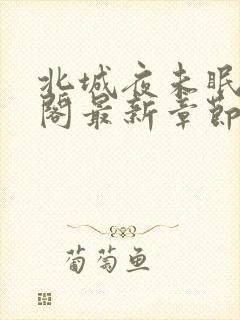 北城夜未眠
阁最新章節
葡萄鱼